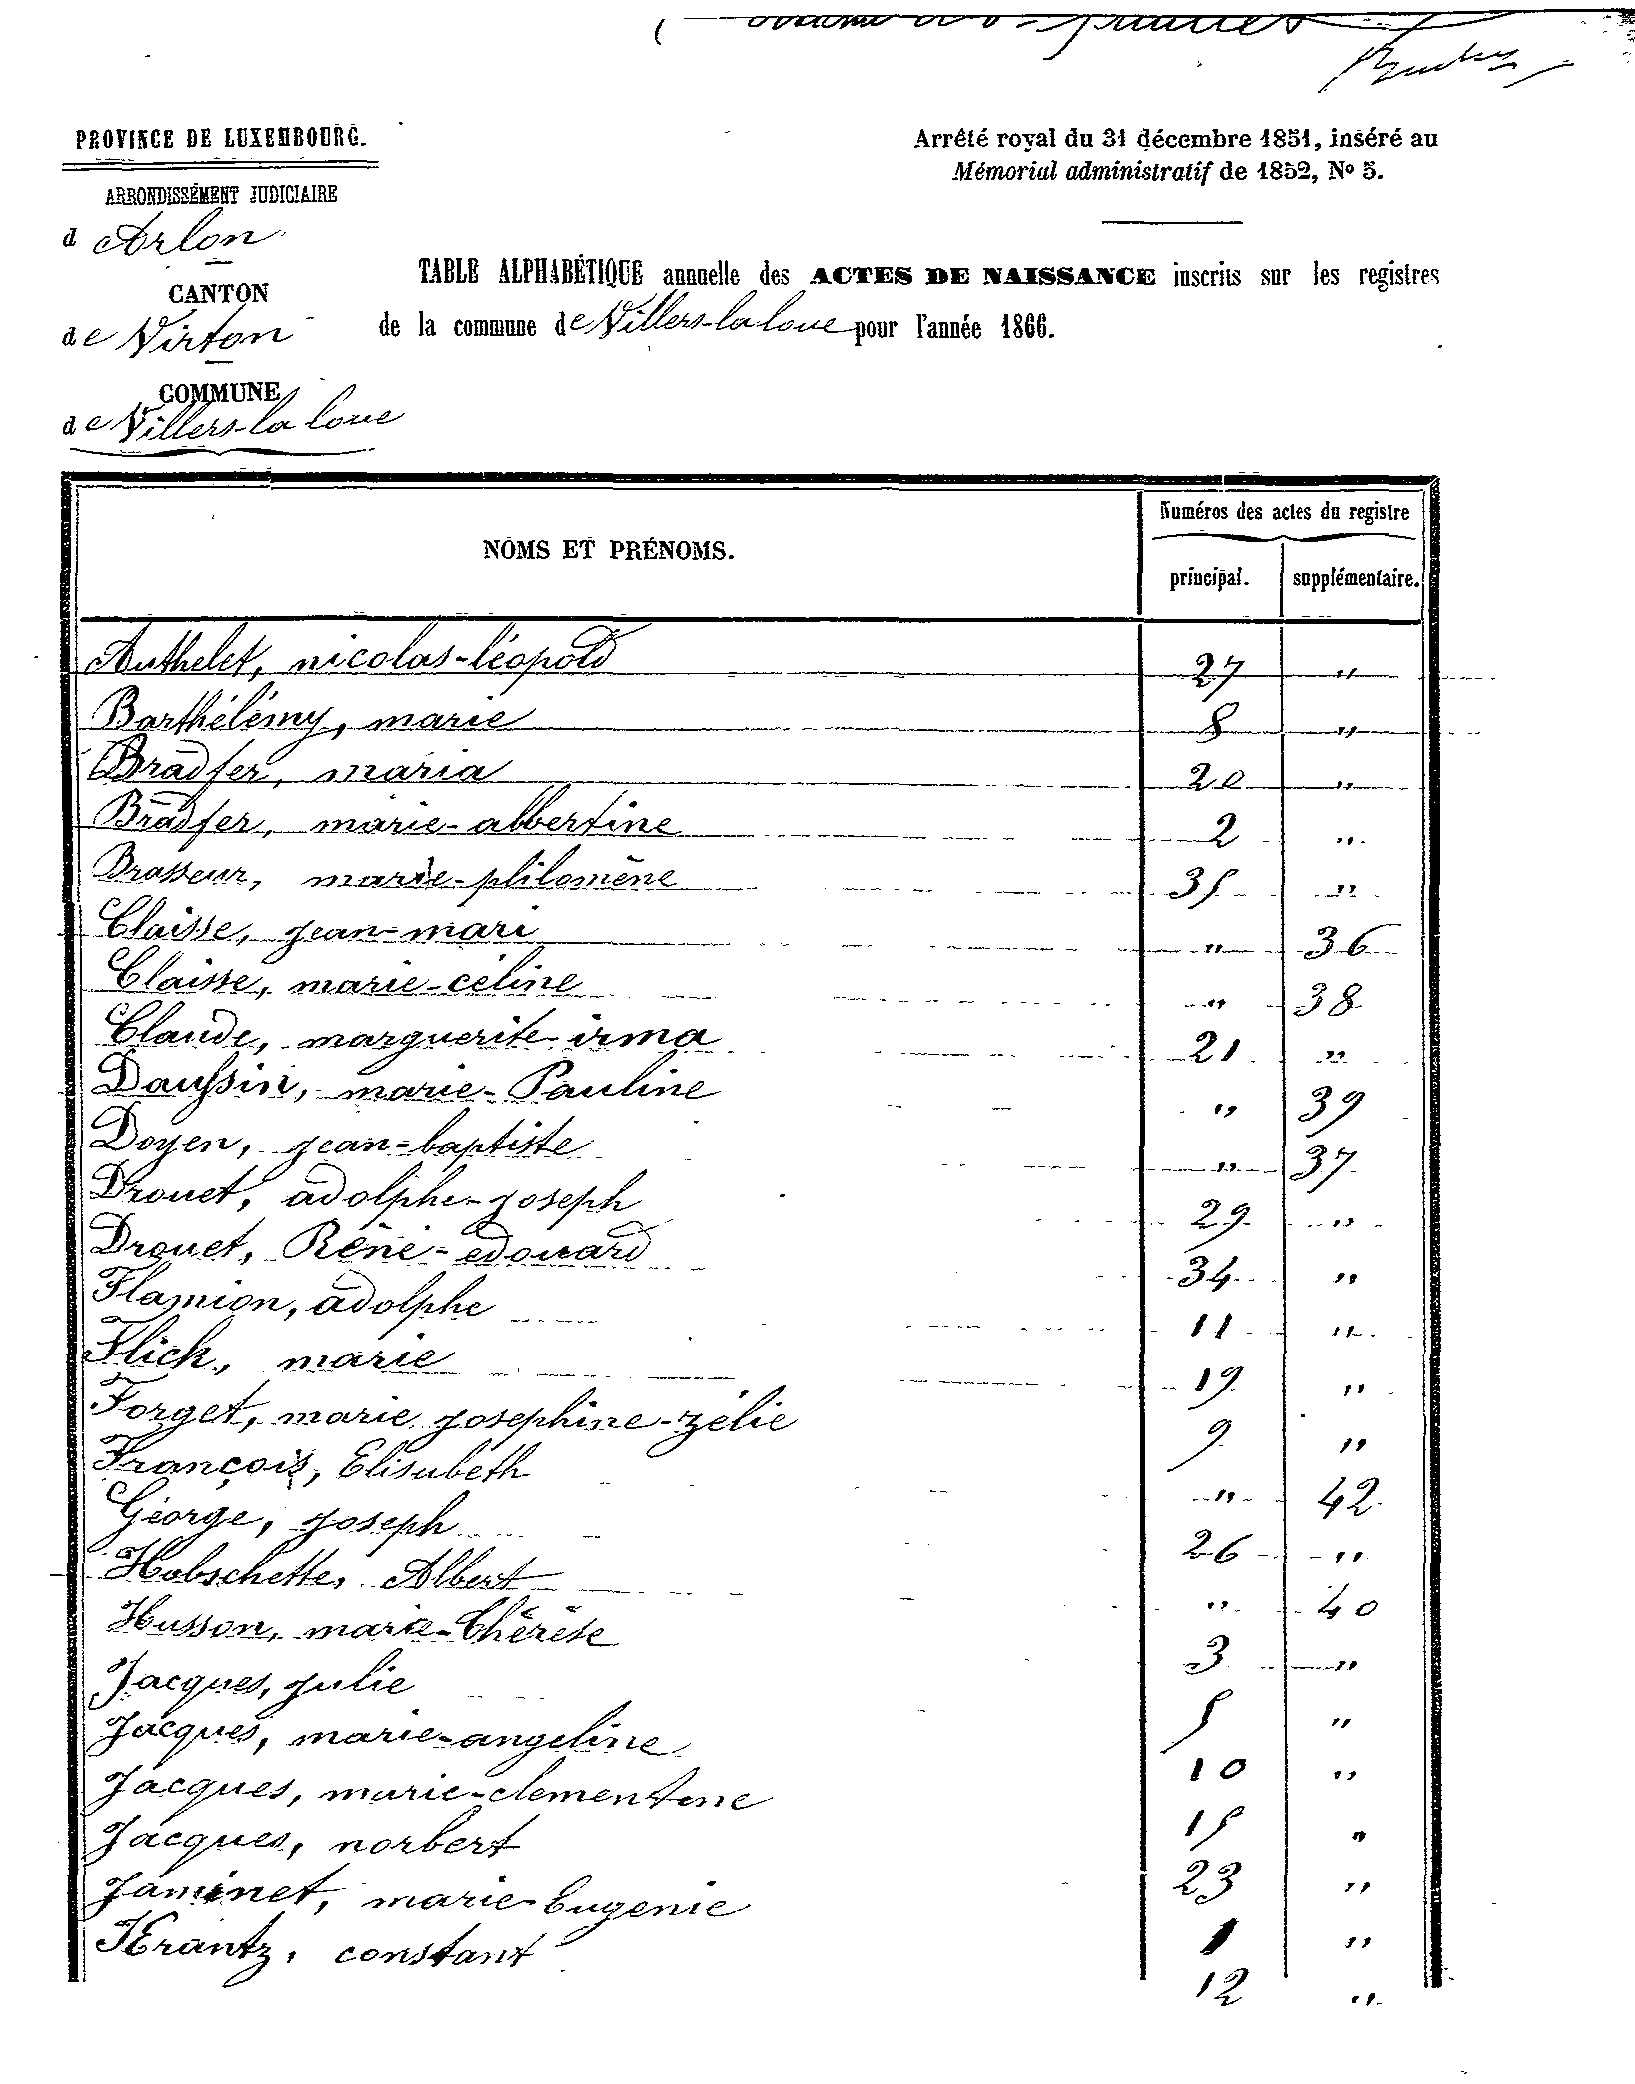 PROVINCE DE LUXEMBOURG.
ARRONDISSEMENT JUDICIAIRE
d'Arlon
CANTON
de Virton
COMMUNE
de Villers-la loue
Arrêté royal du 31 décembre 1851, inséré au
Mémorial administratif de 1852, No 5.
TABLE ALPHABÉTIQUE annuelle des ACTES DE NAISSANCE inscrits sur les registres
de la commune de Villers-la loue pour l'année 1866.
NOMS ET PRÉNOMS.
Numéros des actes du registre
principal. supplémentaire.
Authelet, nicolas-léopold 27 "
Barthélémy, marie 8 "
Bradfer, maria 20 "
Bradfer, marie-albertine 2 "
Brasseur, marie-philomène 35 "
Claisse, jean-mari " 36
Claisse, marie-céline " 38
Claude, marguerite-irma 21 "
Daussin, marie-Pauline " 39
Doyen, jean-baptiste " 37
Drouet, adolphe-joseph 29 "
Drouet, Réné-edouard 34 "
Flamion, adolphe 11 "
Flick, marie 19 "
Forget, marie josephine-zélie 9 "
François, Elisabeth " 42
George, joseph 26 "
Hobschette, Albert " 40
Husson, marie-Thérèse 3 "
Jacques, julie 5 "
Jacques, marie-angeline 10 "
Jacques, marie-clementine 15 "
Jacques, norbert 23 "
Jaminet, marie-Eugenie 1 "
Krantz, constant 12 "